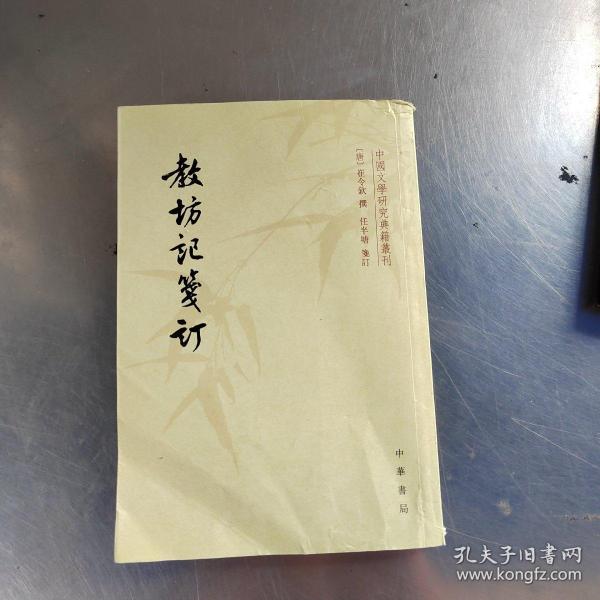 中國文學研究典籍叢刊
〔唐〕崔令欽 撰 任半塘 箋訂
教坊記箋訂
中華書局
孔夫子旧书网
www.kongfz.com